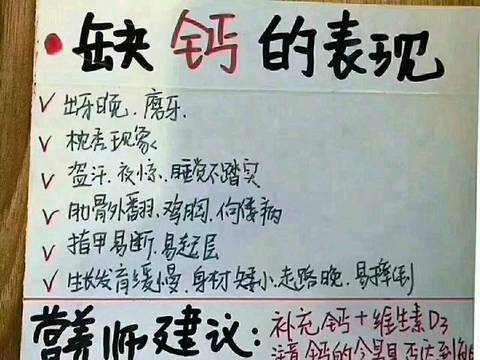 缺钙的表现
出牙晚.磨牙.
枕秃现象
盗汗.夜惊.睡觉不踏实
肋骨外翻.鸡胸.佝偻病
指甲易断.易起层
生长发育缓慢.身材矮小.走路晚.易摔倒
营养师建议:
补充钙+维生素D3
注意钙的含量是否达到